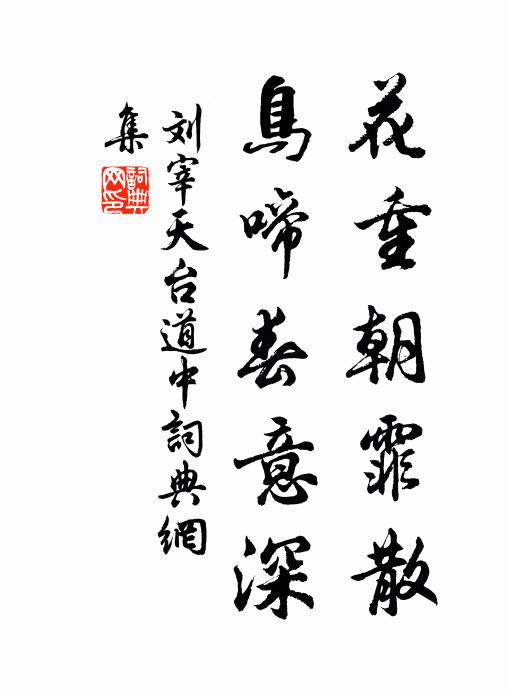 花重朝霏散
鳥啼春意深
刘宰天台道中詞典網
集
詞典
网印